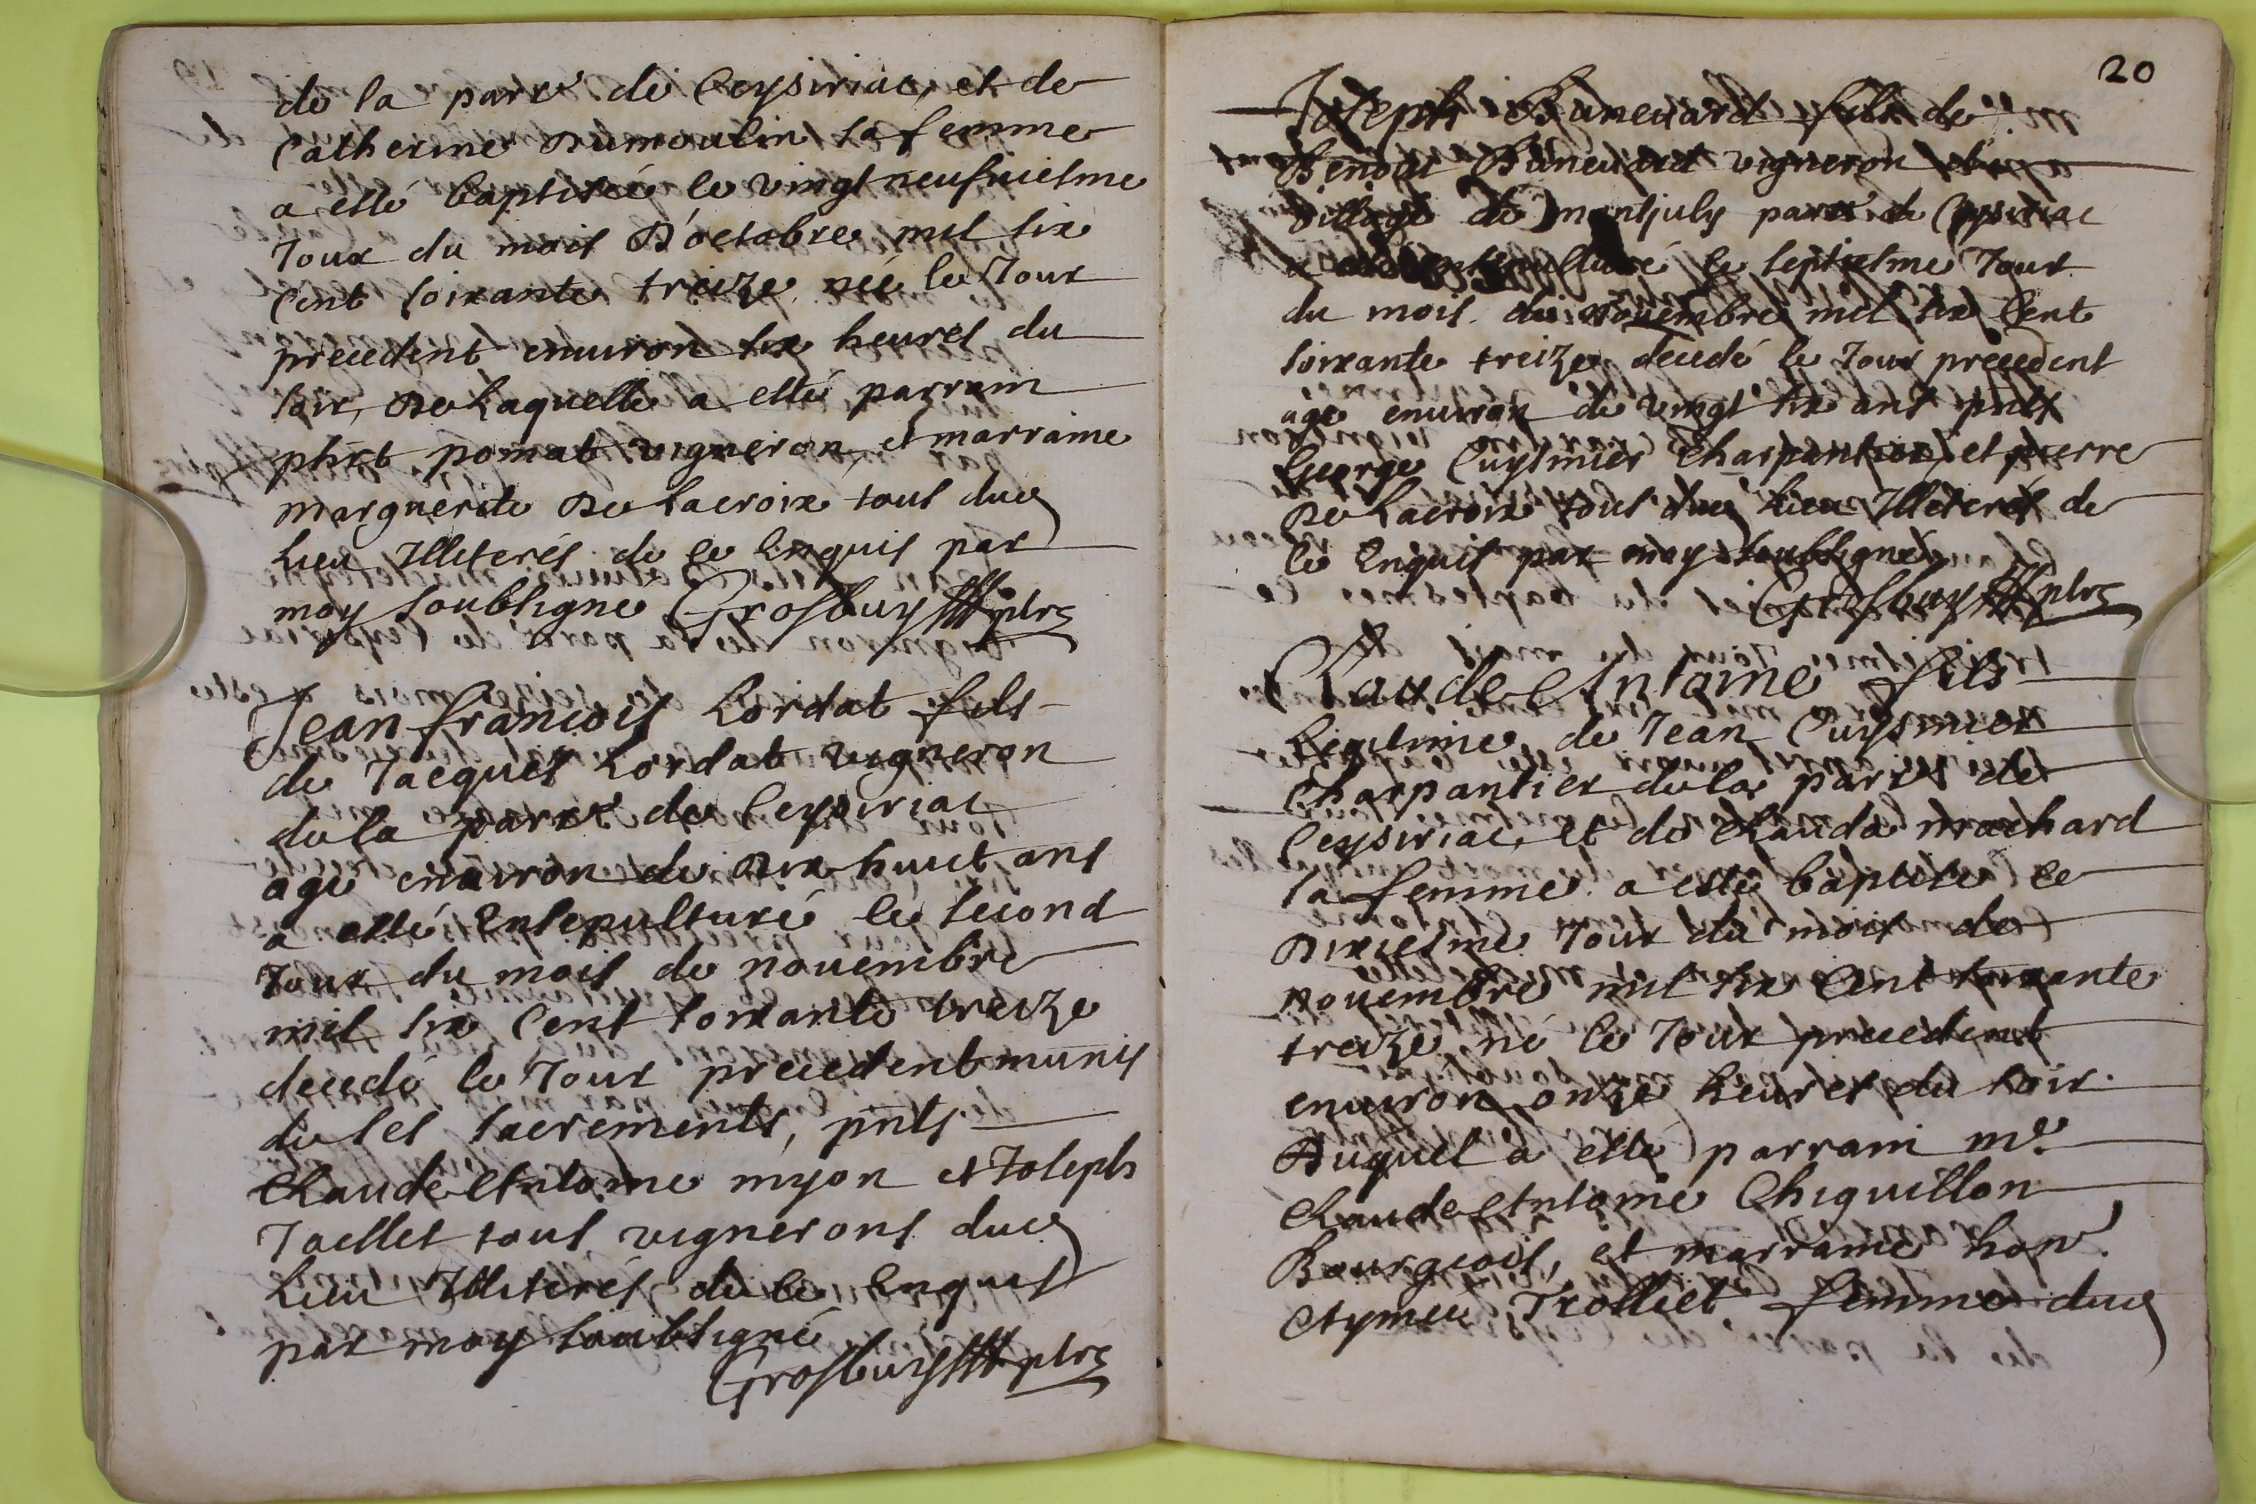 de la parr.e de Ceysiriac, et de
Catherine Dumoulin sa femme
a esté baptisée le vingt neufviesme
Jour du mois D'octobre mil six
Cent soixante treize née le Jour
precedent environ six heures du
soir, De Laquelle a esté parrain
phlt pomat vigneron, et marraine
marguerite De Lacroix tous dud
Lieu Illiterés de ce Enquis par
moy soubsigné Grosbuys ptre
Jean francois Lordat fils
de Jacques Lordat vigneron
de la parr.e de Ceysiriac
agé environ de Dix huict ans
a esté Ensepulturé le second
Jour du mois de novembre
mil six Cent soixante treize
decedé le Jour precedent munis
de ses sacrements, pnts
Claude Antoine myon et Joseph
Jaellet tous vignerons dud
Lieu Illiterés de ce Enquis
par moy soubsigné
Grosbuys ptre
20
Joseph Buneuard fils de
Benoit Buneuard vigneron du
village de montjuly parr.e de Ceysiriac
a esté ensepulturé le septiesme Jour
du mois de novembre mil six Cent
soixante treize decedé le Jour precedent
agé environ de vingt six ans pnts
George Cuysinier Charpantier, et pierre
De Lacroix tous dud Lieu Illiterés de
ce Enquis par moy soubsigné
Grosbuys ptre
Claude Antoine fils
Legitime de Jean Cuysinier
Charpantier de la parr.e de
Ceysiriac, et de Clauda machard
sa femme a esté baptisé le
Dixiesme Jour du mois de
novembre mil six Cent soixante
treize né le Jour precedent
environ onze heures du soir
Duquel a esté parrain m.e
Claude Antoine Chiquillon
Bourgeois, et marraine hon.e
Aymée Trolliet femme dud